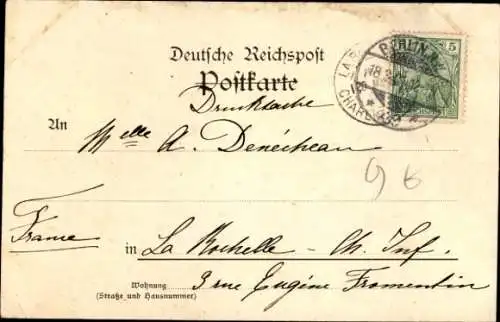 Deutsche Reichspost
Postkarte
Drucksache
5
BERLIN
An Melle A. Denécheau
France
in La Rochelle – Ch. Inf.
Wohnung
(Straße und Hausnummer)
3 rue Eugène Fromentin